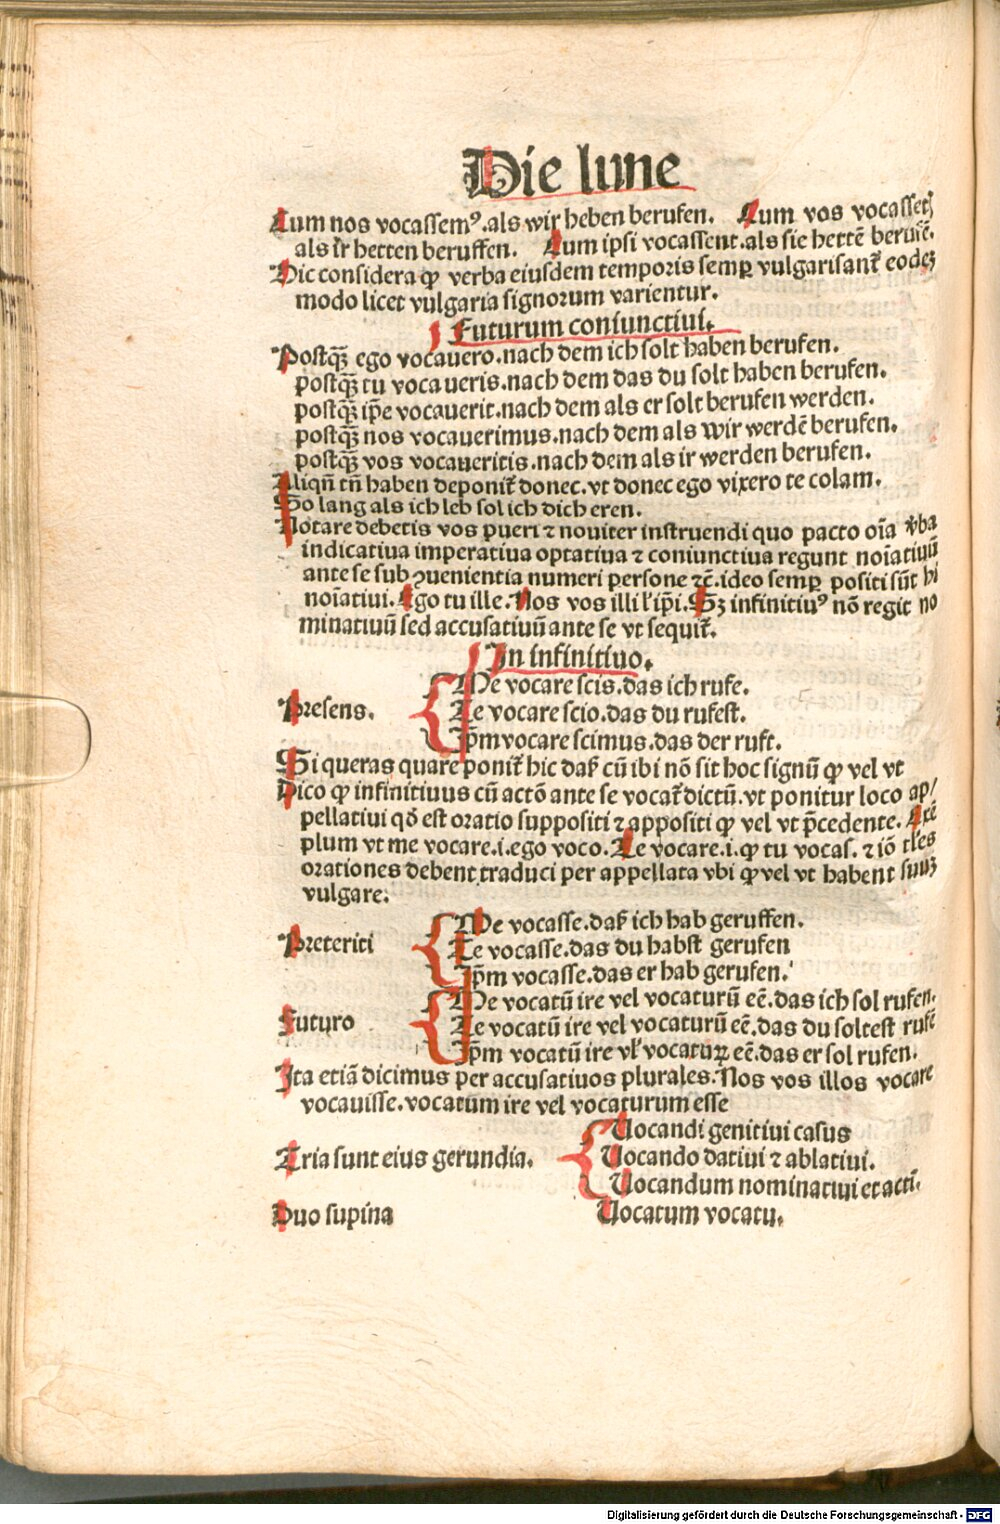 Die lune
Cum nos vocassemꝰ.als wir heben berufen. Cum vos vocassetꝭ
als ir hetten beruffen. Cum ipsi vocassent.als sie hettē berufē.
Hic considera ꝙ verba eiusdem temporis semꝑ vulgarisant᷑ eodeꝫ
modo licet vulgaria signorum varientur.
Futurum coniunctiui.
Postqꝫ̄ ego vocauero.nach dem ich solt haben berufen.
postqꝫ̄ tu vocaueris.nach dem das du solt haben berufen.
postqꝫ̄ ip̄e vocauerit.nach dem als er solt berufen werden.
postqꝫ̄ nos vocauerimus.nach dem als wir werdē berufen.
postqꝫ̄ vos vocaueritis.nach dem als ir werden berufen.
Aliqn̄ tn̄ haben deponit᷑ donec.vt donec ego vixero te colam.
So lang als ich leb sol ich dich eren.
Notare debetis vos pueri ⁊ nouiter instruendi quo pacto oīa v̾ba
indicatiua imperatiua optatiua ⁊ coniunctiua regunt noīatiuū
ante se sub ꝯuenientia numeri persone ⁊c̄.ideo semꝑ positi sūt hi
noīatiui.Ego tu ille.Nos vos illi l’ip̄i.Sꝫ infinitiuꝰ nō regit no
minatiuū sed accusatiuū ante se vt sequit᷑.
In infinitiuo.
Me vocare scis.das ich rufe.
Presens. Te vocare scio.das du rufest.
Ip̄m vocare scimus.das der ruft.
Si queras quare ponit᷑ hic daß cū ibi nō sit hoc signū ꝙ vel vt
Dico ꝙ infinitiuus cū actō ante se vocat᷑ dictū.vt ponitur loco ap/
pellatiui qd̄ est oratio suppositi ⁊ appositi ꝙ vel vt p̄cedente. Exē
plum vt me vocare.i.ego voco.Te vocare.i.ꝙ tu vocas. ⁊ iō tl’es
orationes debent traduci per appellata vbi ꝙ vel vt habent suuꝫ
vulgare.
Me vocasse.daß ich hab geruffen.
Preteriti Te vocasse.das du habst gerufen
Ip̄m vocasse.das er hab gerufen.
Me vocatū ire vel vocaturū eē.das ich sol rufen.
Futuro Te vocatū ire vel vocaturū eē.das du soltest rufē
Ip̄m vocatū ire vl’ vocaturꝝ eē.das er sol rufen.
Ita etiā dicimus per accusatiuos plurales.Nos vos illos vocare
vocauisse.vocatum ire vel vocaturum esse
Vocandi genitiui casus
Tria sunt eius gerundia. Vocando datiui ⁊ ablatiui.
Vocandum nominatiui et acti̅.
Duo supina Vocatum vocatu.
Digitalisierung gefördert durch die Deutsche Forschungsgemeinschaft - DFG